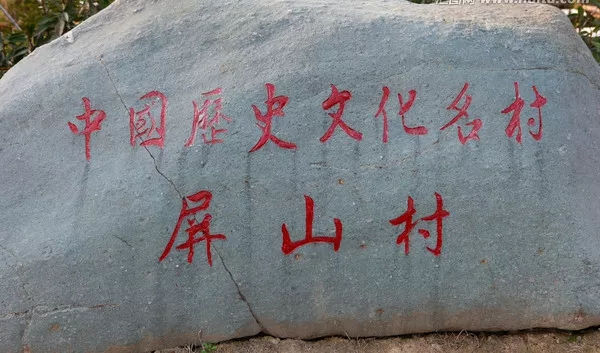 中國歷史文化名村
屏山村